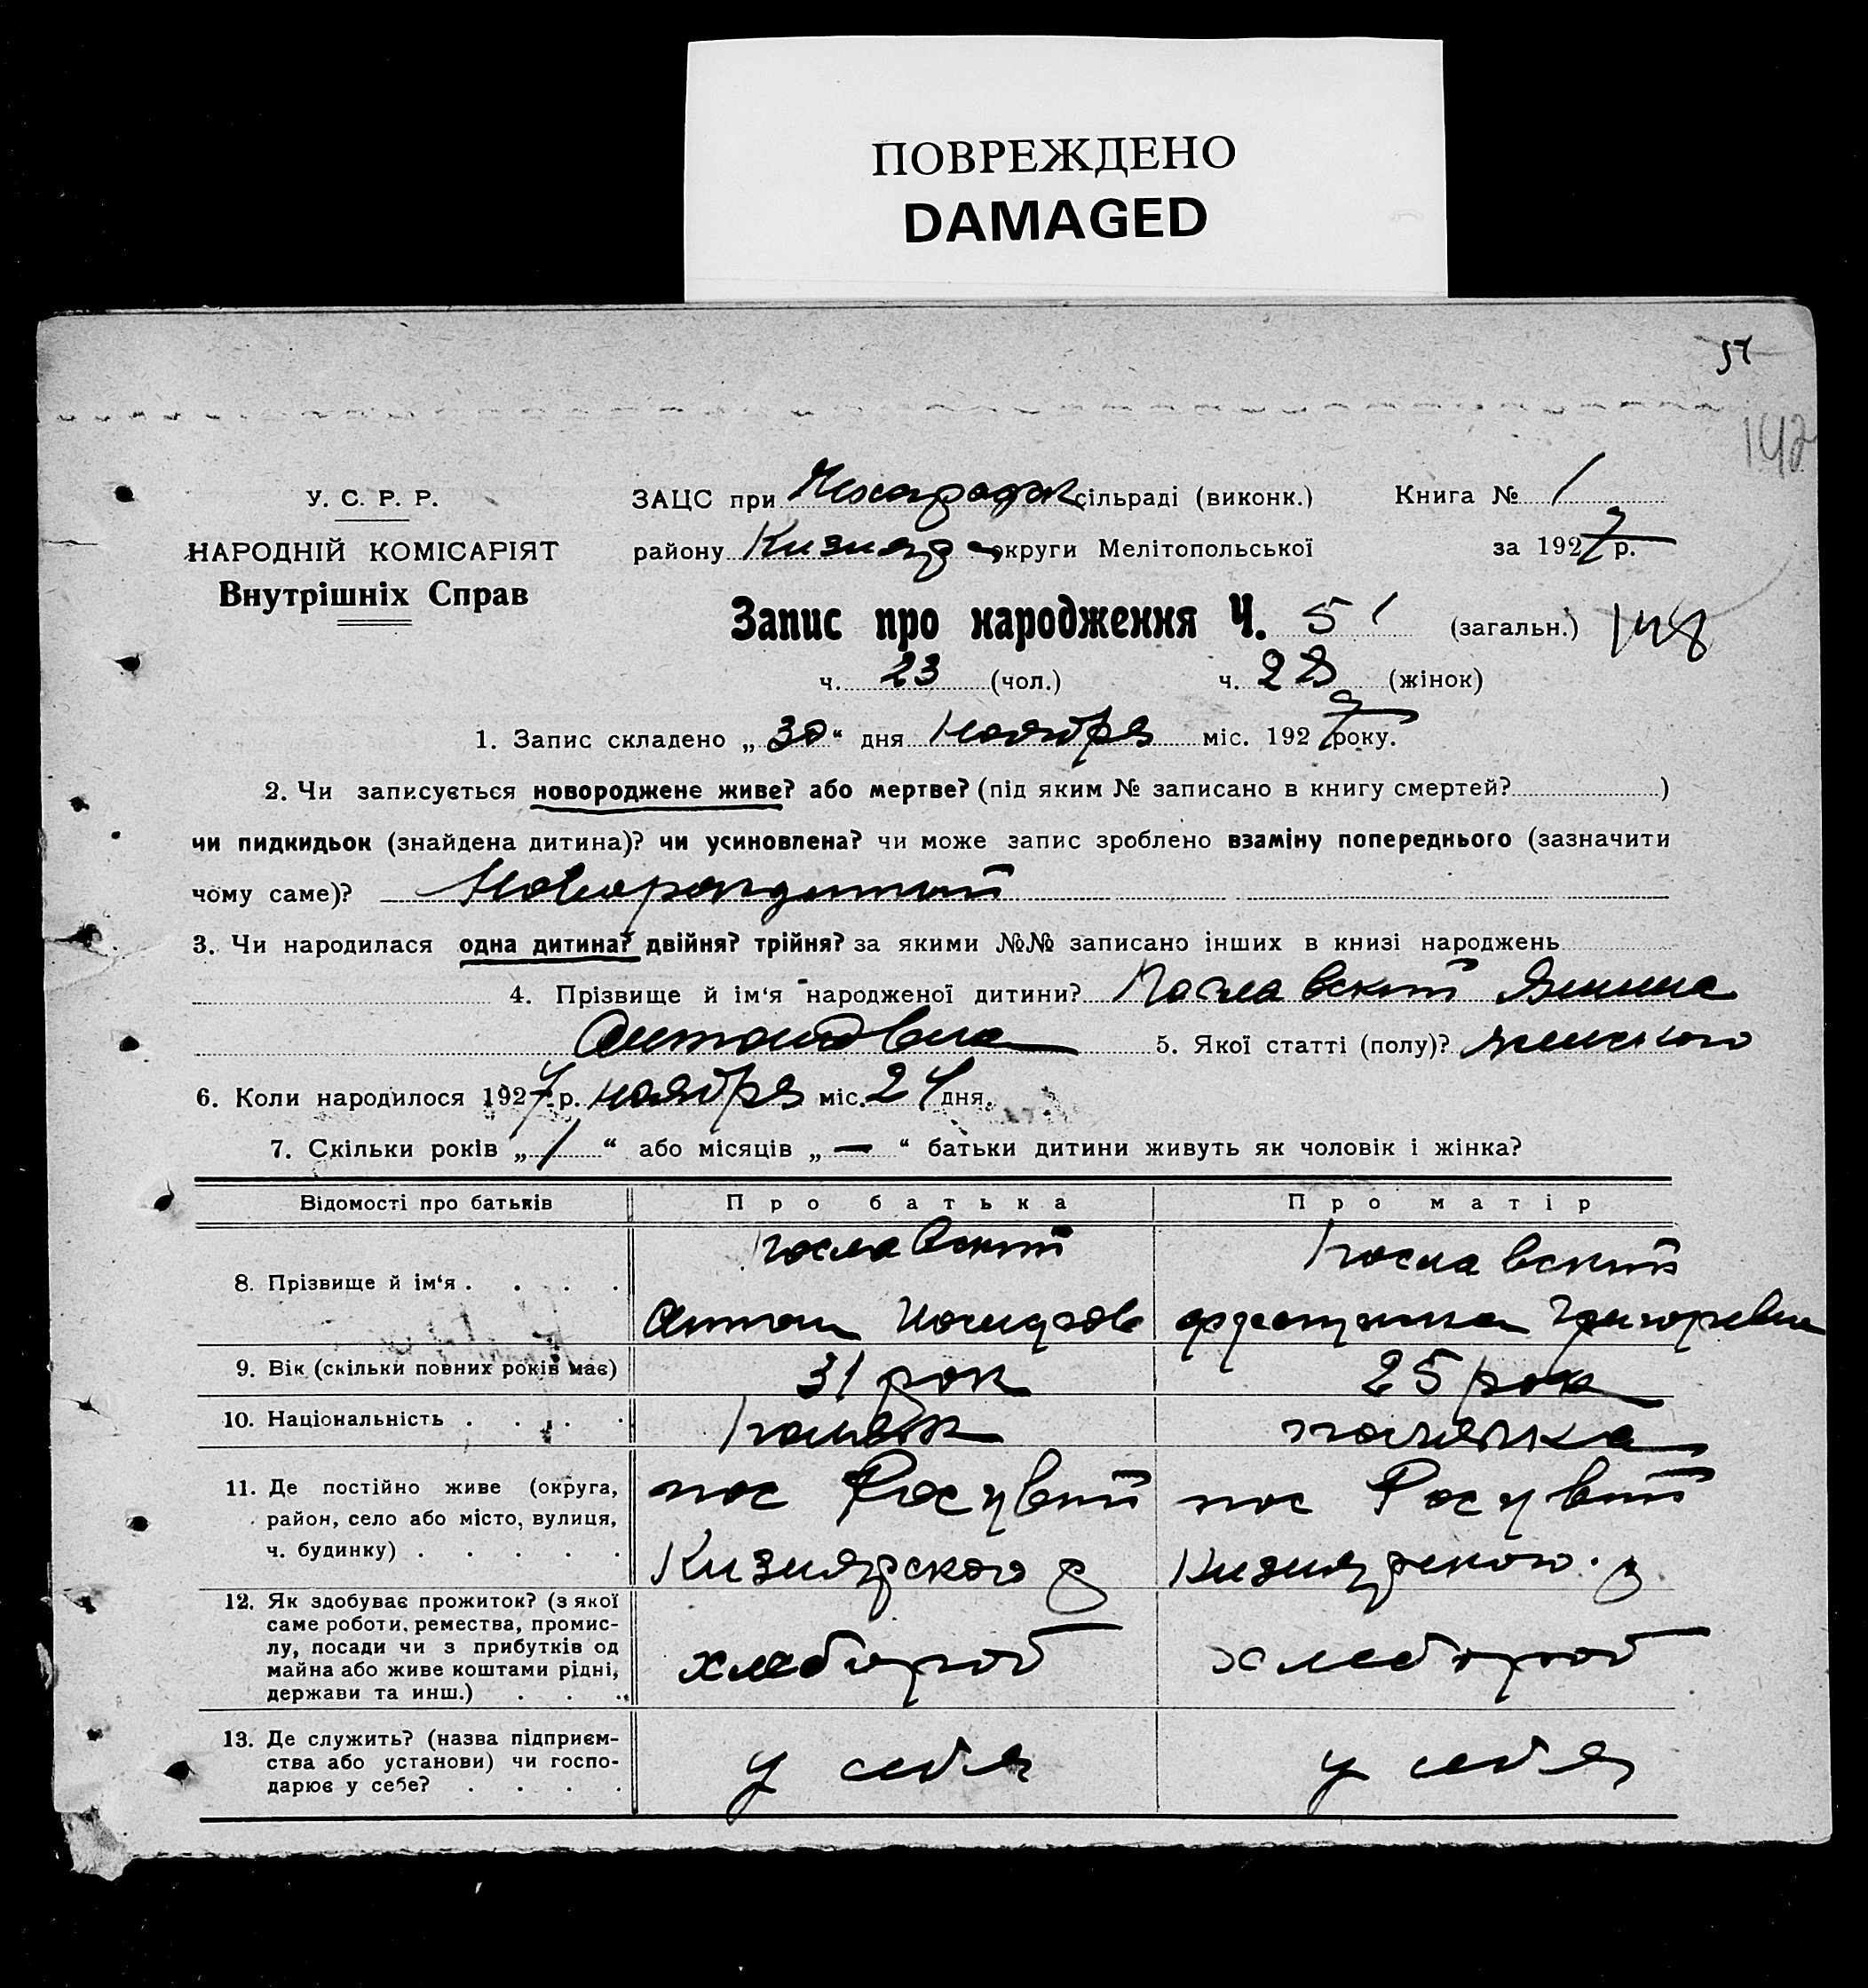 ПОВРЕЖДЕНО
DAMAGED
51
142
У. С. Р. Р.
НАРОДНІЙ КОМІСАРІЯТ
Внутрішніх Справ
ЗАЦС при сільраді (виконк.) Книга № 1
району Кизияр округи Мелітопольської за 1927 р.
Запис про народження Ч. 51 (загальн.) 148
ч. 23 (чол.) ч. 28 (жінок)
1. Запис складено „ 30 “ дня Ноября міс. 1927 року.
2. Чи записується новороджене живе? або мертве? (під яким № записано в книгу смертей? )
чи пидкидьок (знайдена дитина)? чи усиновлена? чи може запис зроблено взаміну попереднього (зазначити
чому саме)? Новорожденный
3. Чи народилася одна дитина? двійня? трійня? за якими №№ записано інших в книзі народжень
4. Прізвище й ім‘я народженої дитини? Янина
Антоновна 5. Якої статті (полу)? женского
6. Коли народилося 1927 р. ноября міс. 24 дня.
7. Скільки років „ 1 “ або місяців „ — “ батьки дитини живуть як чоловік і жінка?
Відомості про батьків Про батька Про матір
8. Прізвище й ім‘я . . . .
Антон Григоревна
9. Вік (скільки повних років має) 31 рок 25 рок
10. Національність . . . . поляк полячка
11. Де постійно живе (округа, район, село або місто, вулиця, ч. будинку) . . . . .
пос пос
Кизиярского р Кизиярского р
12. Як здобуває прожиток? (з якої саме роботи, ремества, промислу, посади чи з прибутків од майна або живе коштами рідні, держави та инш.) . . . хлебороб хлебороб
13. Де служить? (назва підприємства або установи) чи господарює у себе? . . . . у себя у себя